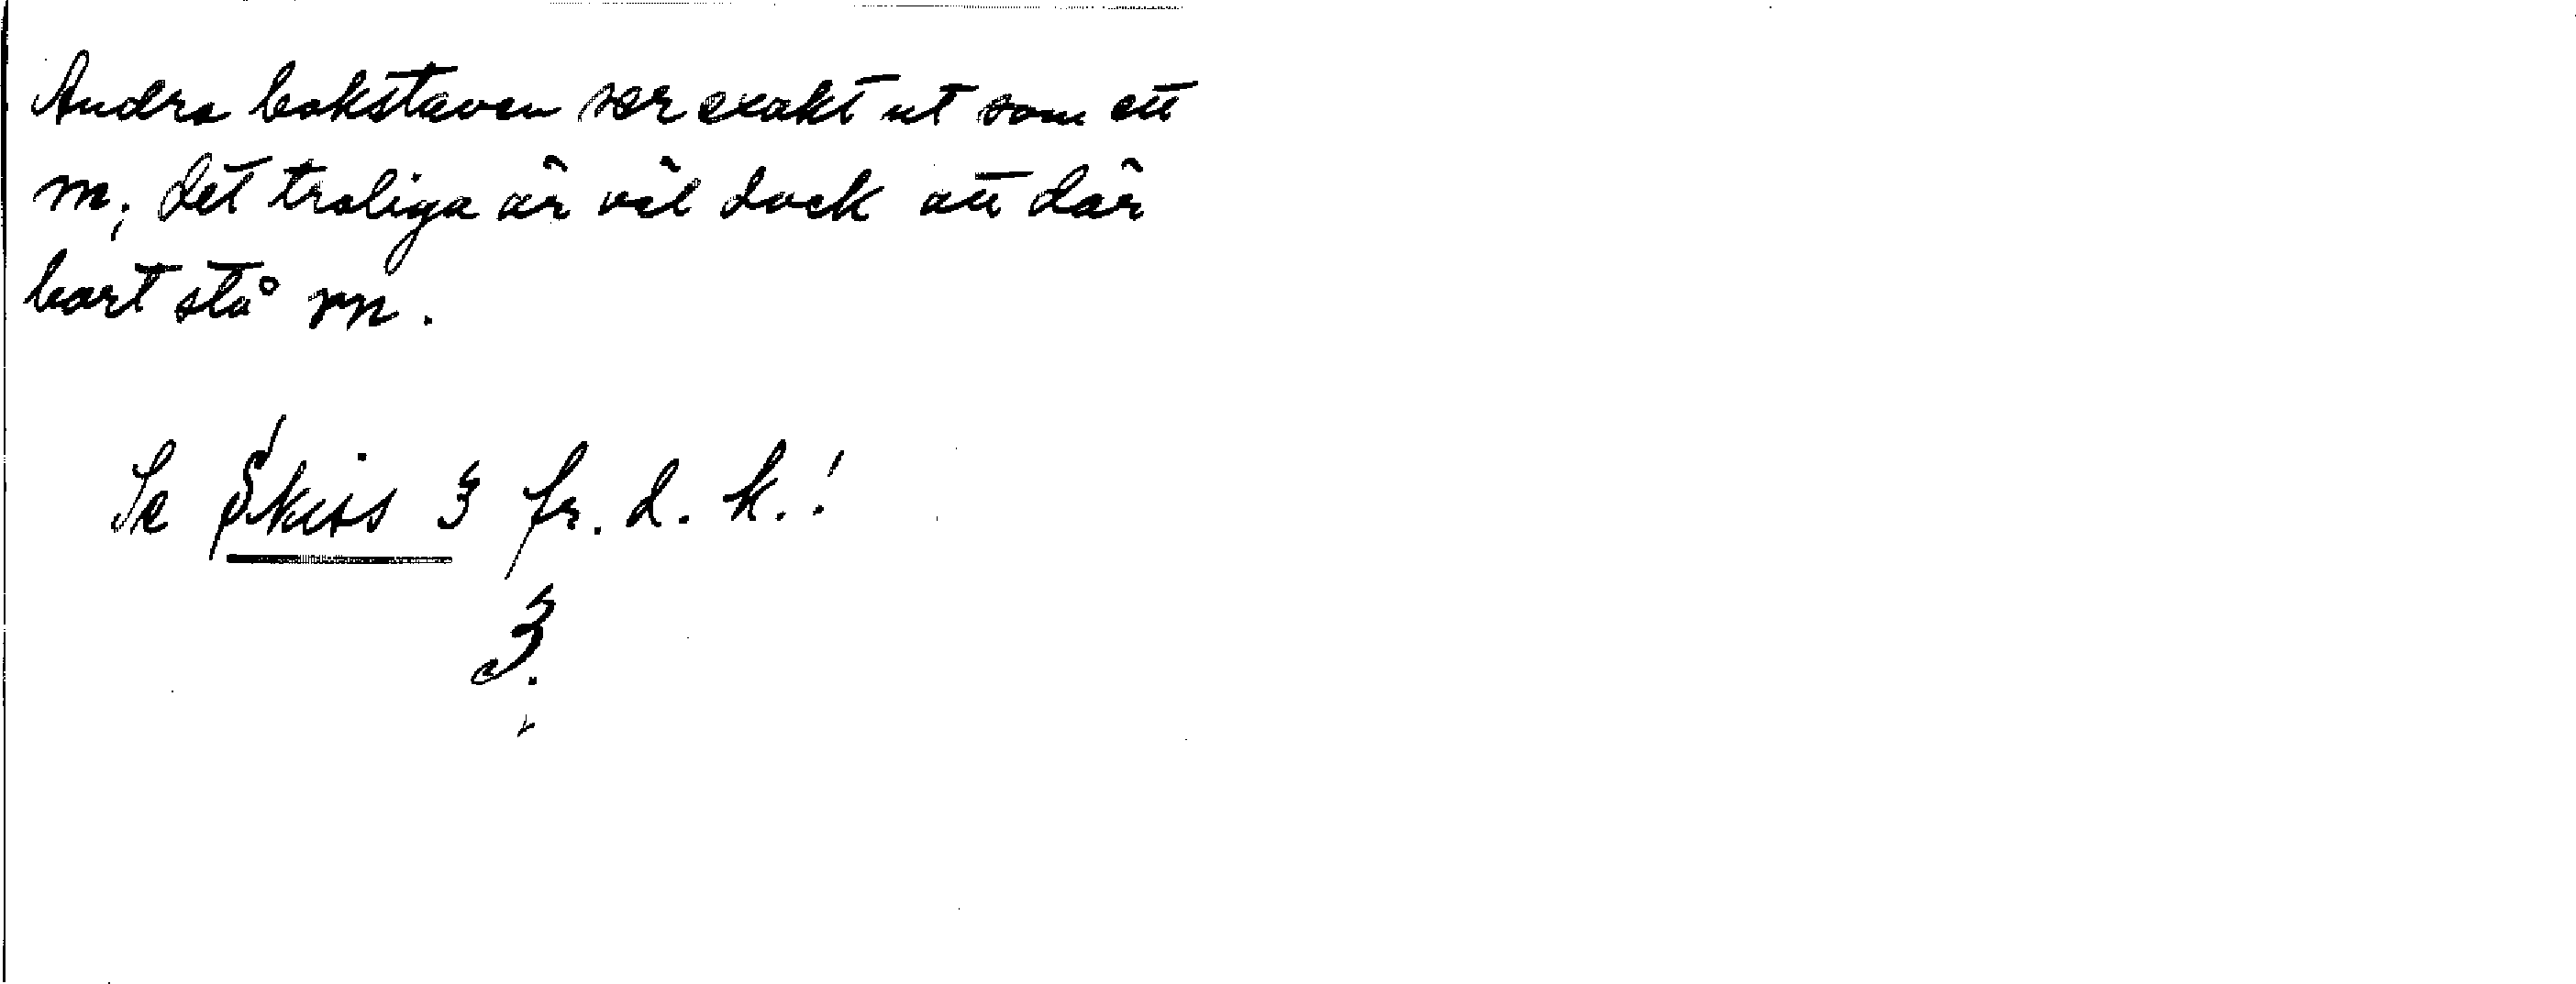 Andra bokstaven ser exakt ut som ett
m; det troliga är väl dock att där
bort stå yn.
Se Skiss 3 fr. d. k.!
3.